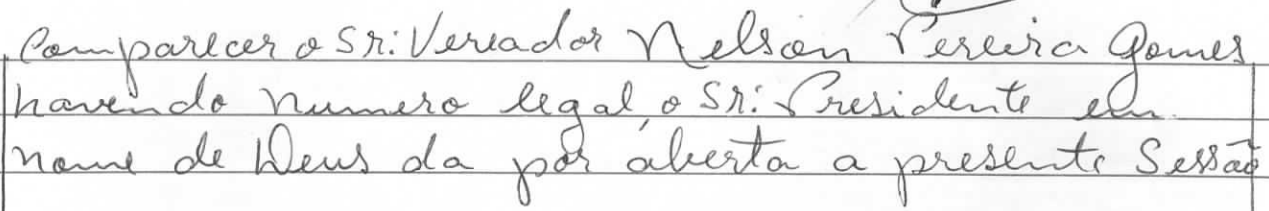 Comparecer o Sr: Vereador Nelson Pereira Gomes
havendo numero legal, o Sr: Presidente em
nome de Deus da por aberta a presente Sessão